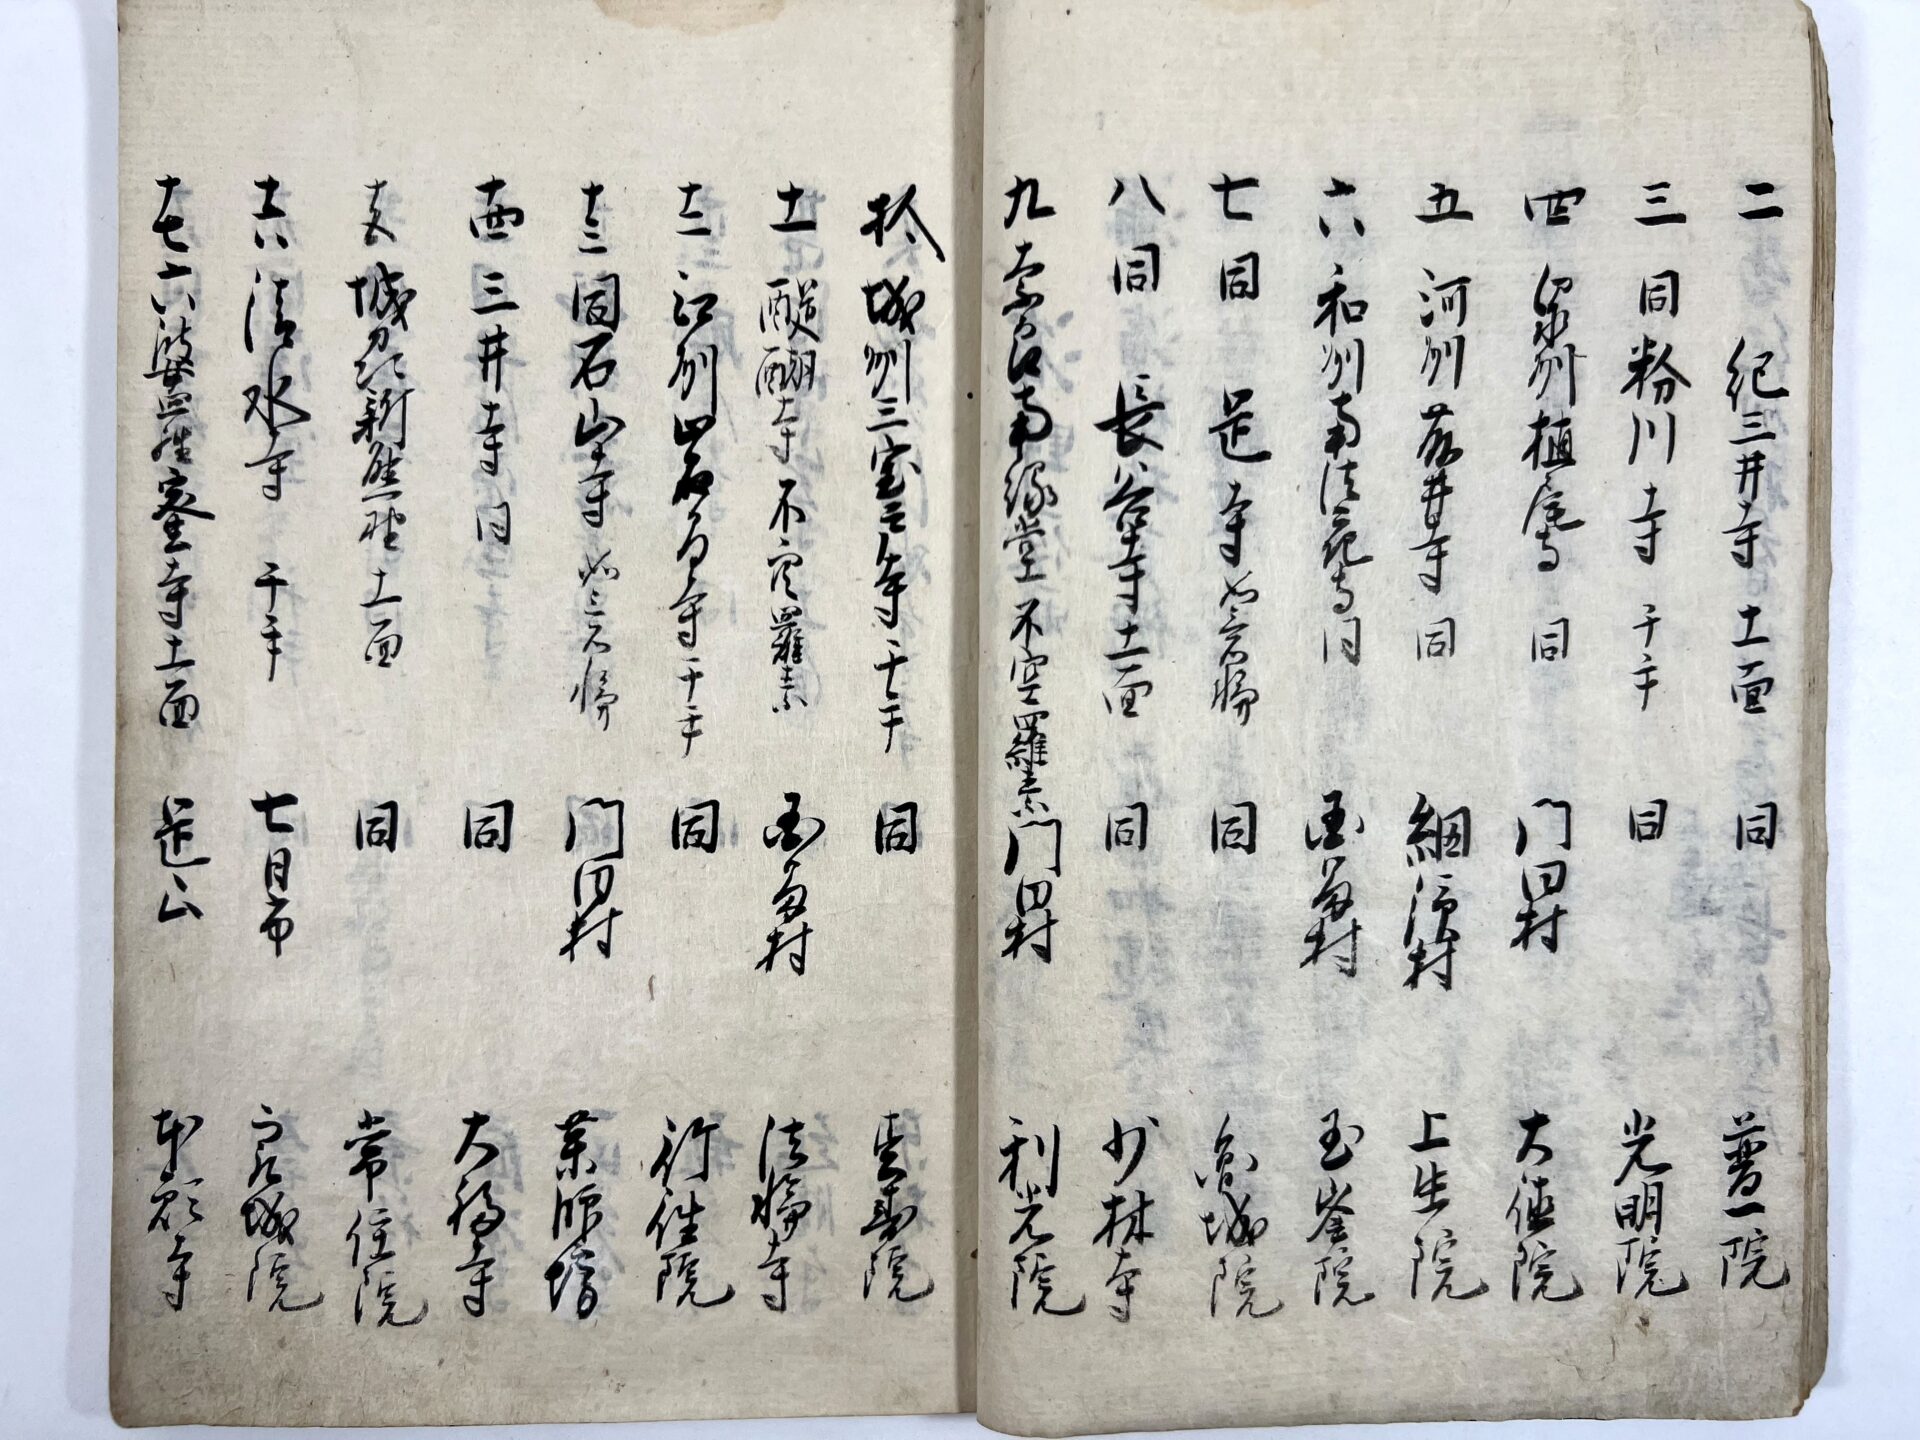 二 紀三井寺 十一面 同 普一院
三 同粉川寺 千手 同 光明院
四 泉州槙尾寺 同 門田村 大徳院
五 河州藤井寺 同 細 村 上生院
六 和州南法花寺 同 村 玉峯院
七 同 是寺 如意輪 同 城院
八 同 長谷寺 十一面 同 少林寺
九 奈良南縁堂 不空羅素 門田村 利光院
拾 城州三室戸寺 千手 同 寿院
十一 醍醐寺 不空羅素 村 法輪寺
十二 江州岩間寺 千手 同 行性院
十三 同石山寺 如意輪 門田村 薬師坊
十四 三井寺 同 同 大福寺
十五 城州新熊野 十一面 同 常住院
十六 清水寺 千手 七日市 城院
十七 六波羅密寺 十一面 是山 本願寺